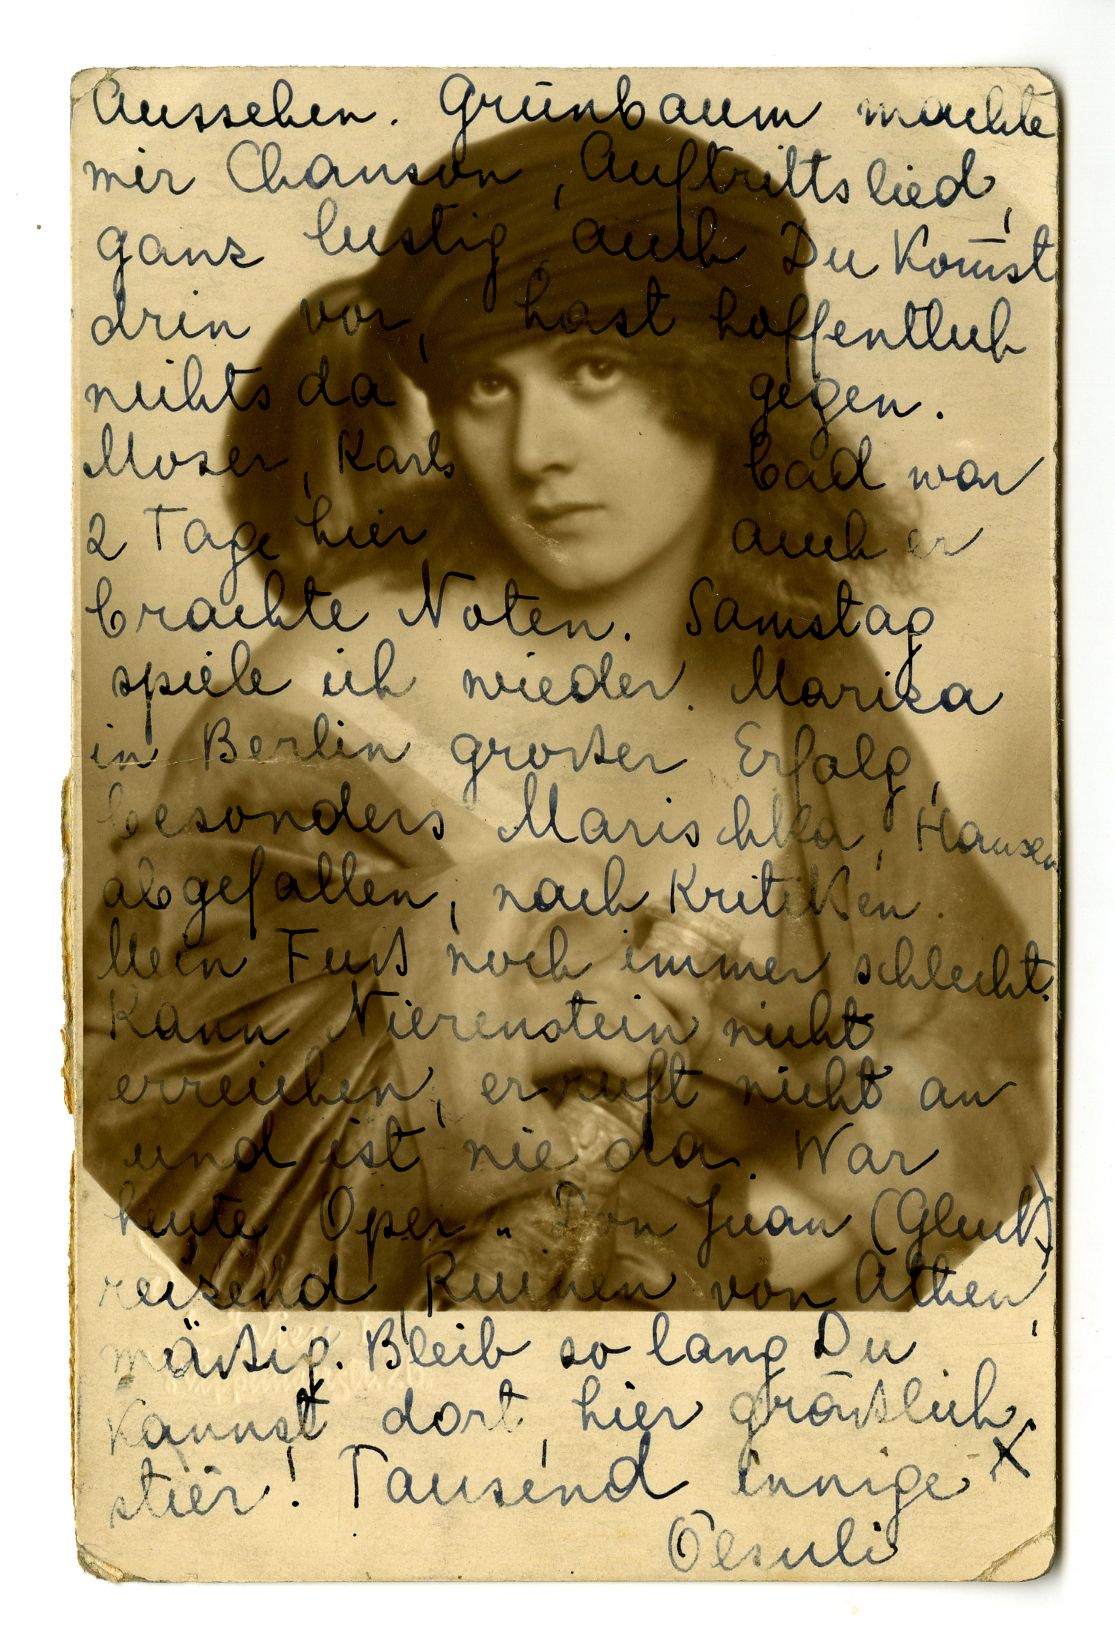 Aussehen. Grünbaum machte
mir Chanson, Auftrittslied,
ganz lustig, auch Du Kom̅st
drin vor, hast hoffentlich
nichts da gegen.
Moser, Karlsbad war
2 Tage hier auch er
brachte Noten. Samstag
spiele ich wieder. Mariza
in Berlin großer Erfolg,
besonders Marischka, Hansen
abgefallen, nach Kritiken.
Mein Fuß noch immer schlecht.
Kann Nierenstein nicht
erreichen, er ruft nicht an
und ist nie da. War
heute Oper „Don Juan (Gluck)
reizend, Ruinen von Athen,
mäßig. Bleib so lang Du
Kannst dort, hier gräßlich
stier! Tausend innige X